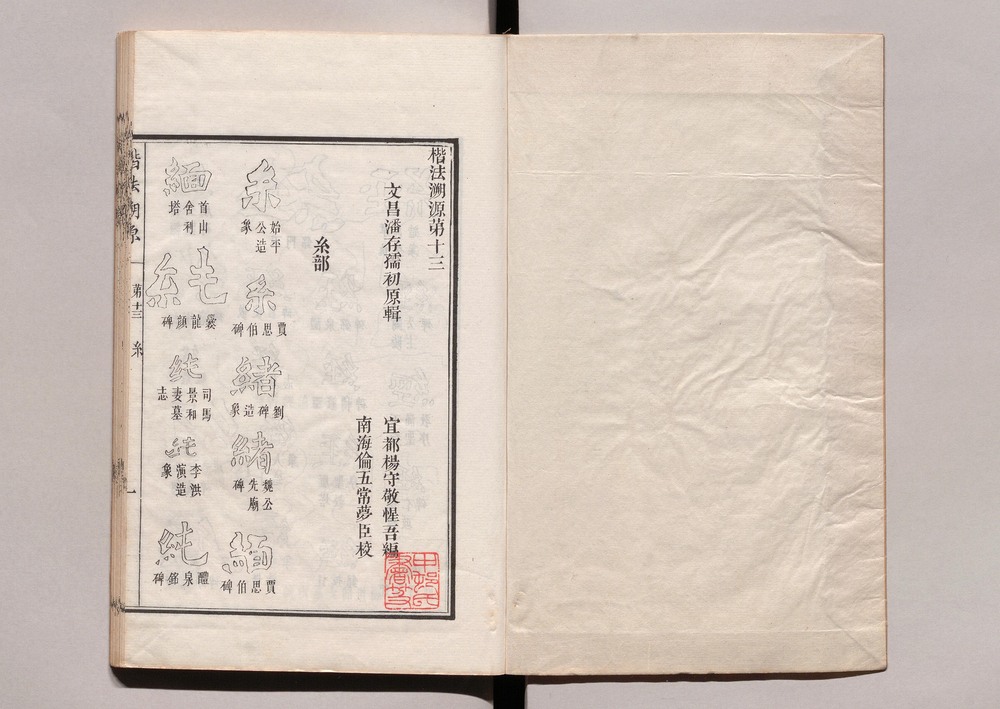 楷法溯源第十三
文昌潘存孺初原輯
宜都楊守敬惺吾編
南海倫五常夢臣校
糸部
糸
始平公造象
糸
賈思伯碑
緒
劉碑造象
緒
魏公先廟碑
緬
賈思伯碑
緬
首山舍利塔
純
爨龍顏碑
純
司馬景和妻墓志
純
李洪演造象
純
醴泉銘碑
楷法溯原
第十三
糸
一